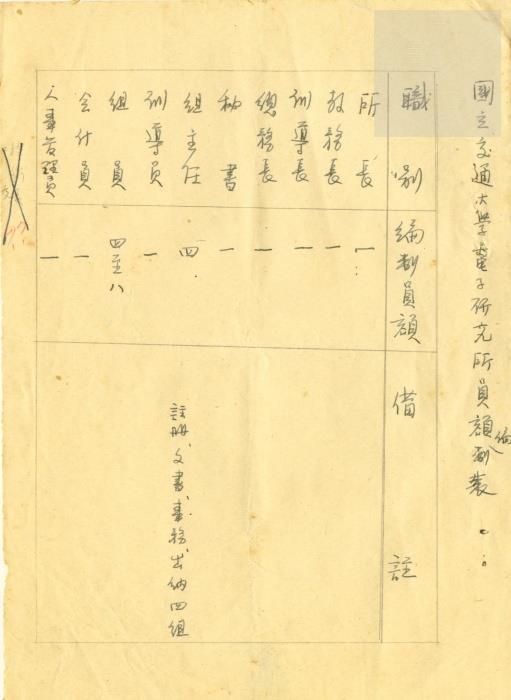 國立交通大學電子研究所員額編制表
職別 編制員額 備註
所長 一
教務長 一
訓導長 一
總務長 一
秘書 一
組主任 四 註冊、文書、事務、出納四組
訓導員 一
組員 四至八
會計員 一
人事管理員 一